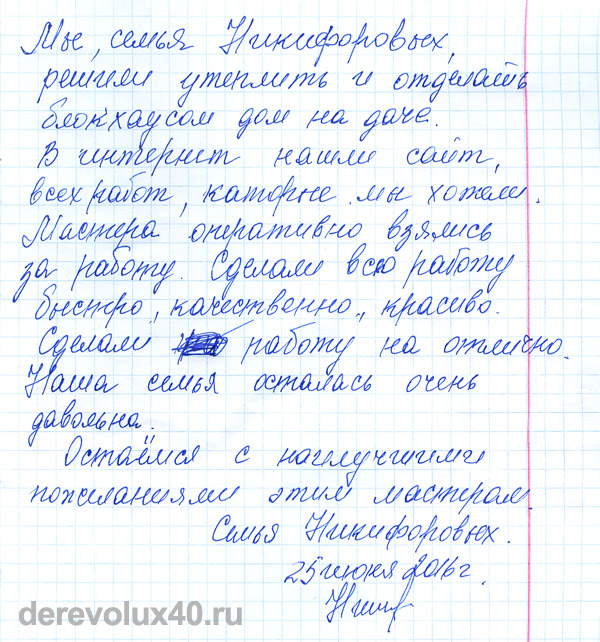 Мы, семья Никифоровых,
решили утеплить и отделать
блокхаусом дом на даче.
В интернит нашли сайт,
всех работ, каторые мы хотели.
Мастера оперативно взялись
за работу. Сделали всю работу
быстро, качественно, красиво.
Сделали работу на отлично.
Наша семья осталась очень
давольна.
Остаёмся с наилучшими
пожеланиями этим мастерам.
Семья Никифоровых.
25 июня 2016г.
derevolux40.ru